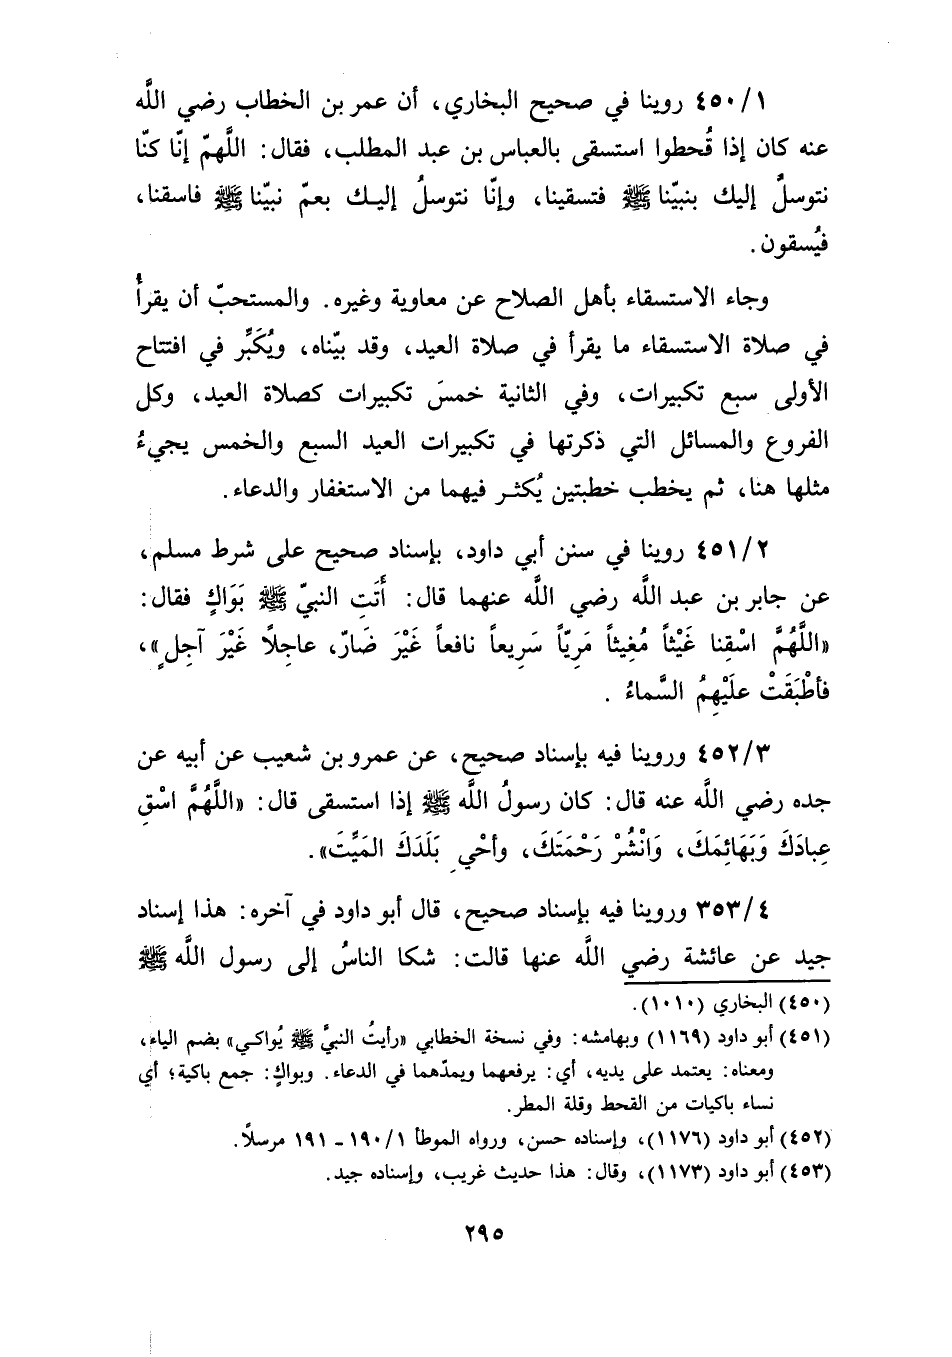 ٤٥٠/١ روينا في صحيح البخاري، أن عمر بن الخطاب رضي اللَّه
عنه كان إذا قُحطوا استسقى بالعباس بن عبد المطلب، فقال: اللَّهمّ إنّا كنّا
نتوسلُ إليك بنبيّنا ﷺ فتسقينا، وإنّا نتوسلُ إليـك بعمّ نبيّنا ﷺ فاسقنا،
فيُسقون.
وجاء الاستسقاء بأهل الصلاح عن معاوية وغيره. والمستحبّ أن يقرأُ
في صلاة الاستسقاء ما يقرأ في صلاة العيد، وقد بيّناه، ويُكَبِّر في افتتاح
الأولى سبع تكبيرات، وفي الثانية خمسَ تكبيرات كصلاة العيد، وكل
الفروع والمسائل التي ذكرتها في تكبيرات العيد السبع والخمس يجيءُ
مثلها هنا، ثم يخطب خطبتين يُكثـر فيهما من الاستغفار والدعاء.
٤٥١/٢ روينا في سنن أبي داود، بإسناد صحيح على شرط مسلم،
عن جابر بن عبد اللَّه رضي اللَّه عنهما قال: أَتَتِ النبيّ ﷺ بَوَاكٍ فقال:
«اللَّهُمَّ اسْقِنا غَيْثاً مُغِيثاً مَرِيّاً سَرِيعاً نافعاً غَيْرَ ضَارّ، عاجِلاً غَيْرَ آجِلٍ»،
فأطْبَقَتْ علَيْهِمُ السَّماءُ .
٤٥٢/٣ وروينا فيه بإسناد صحيح، عن عمرو بن شعيب عن أبيه عن
جده رضي اللَّه عنه قال: كان رسولُ اللَّه ﷺ إذا استسقى قال: «اللَّهُمَّ اسْقِ
عِبادَكَ وَبَهَائِمَكَ، وَانْشُرْ رَحْمَتَكَ، وأحْيِ بَلَدَكَ المَيِّتَ».
٣٥٣/٤ وروينا فيه بإسناد صحيح، قال أبو داود في آخره: هذا إسناد
جيد عن عائشة رضي اللَّه عنها قالت: شكا الناسُ إلى رسول اللَّه ﷺ
(٤٥٠) البخاري (١٠١٠).
(٤٥١) أبو داود (١١٦٩) وبهامشه: وفي نسخة الخطابي «رأيتُ النبيَّ ﷺ يُواكي» بضم الياء،
ومعناه: يعتمد على يديه، أي: يرفعهما ويمدّهما في الدعاء. وبواكٍ: جمع باكية؛ أي
نساء باكيات من القحط وقلة المطر.
(٤٥٢) أبو داود (١١٧٦)، وإسناده حسن، ورواه الموطأ ١٩٠/١ ـ ١٩١ مرسلاً.
(٤٥٣) أبو داود (١١٧٣)، وقال: هذا حديث غريب، وإسناده جيد.
٢٩٥